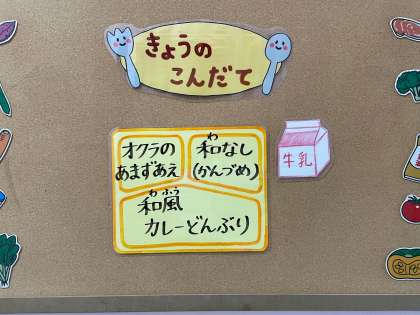 きょうの
こんだて
オクラの
あまずあえ
わ
和なし
(かんづめ)
牛乳
わふう
和風
カレーどんぶり